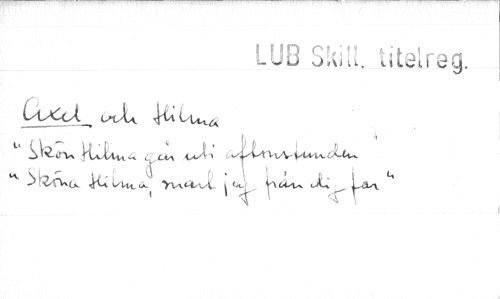 LUB Skill. titelreg.
Axel och Hilma
"Skön Hilma går uti aftonstunden"
"Sköna Hilma, snart jag från dig far"